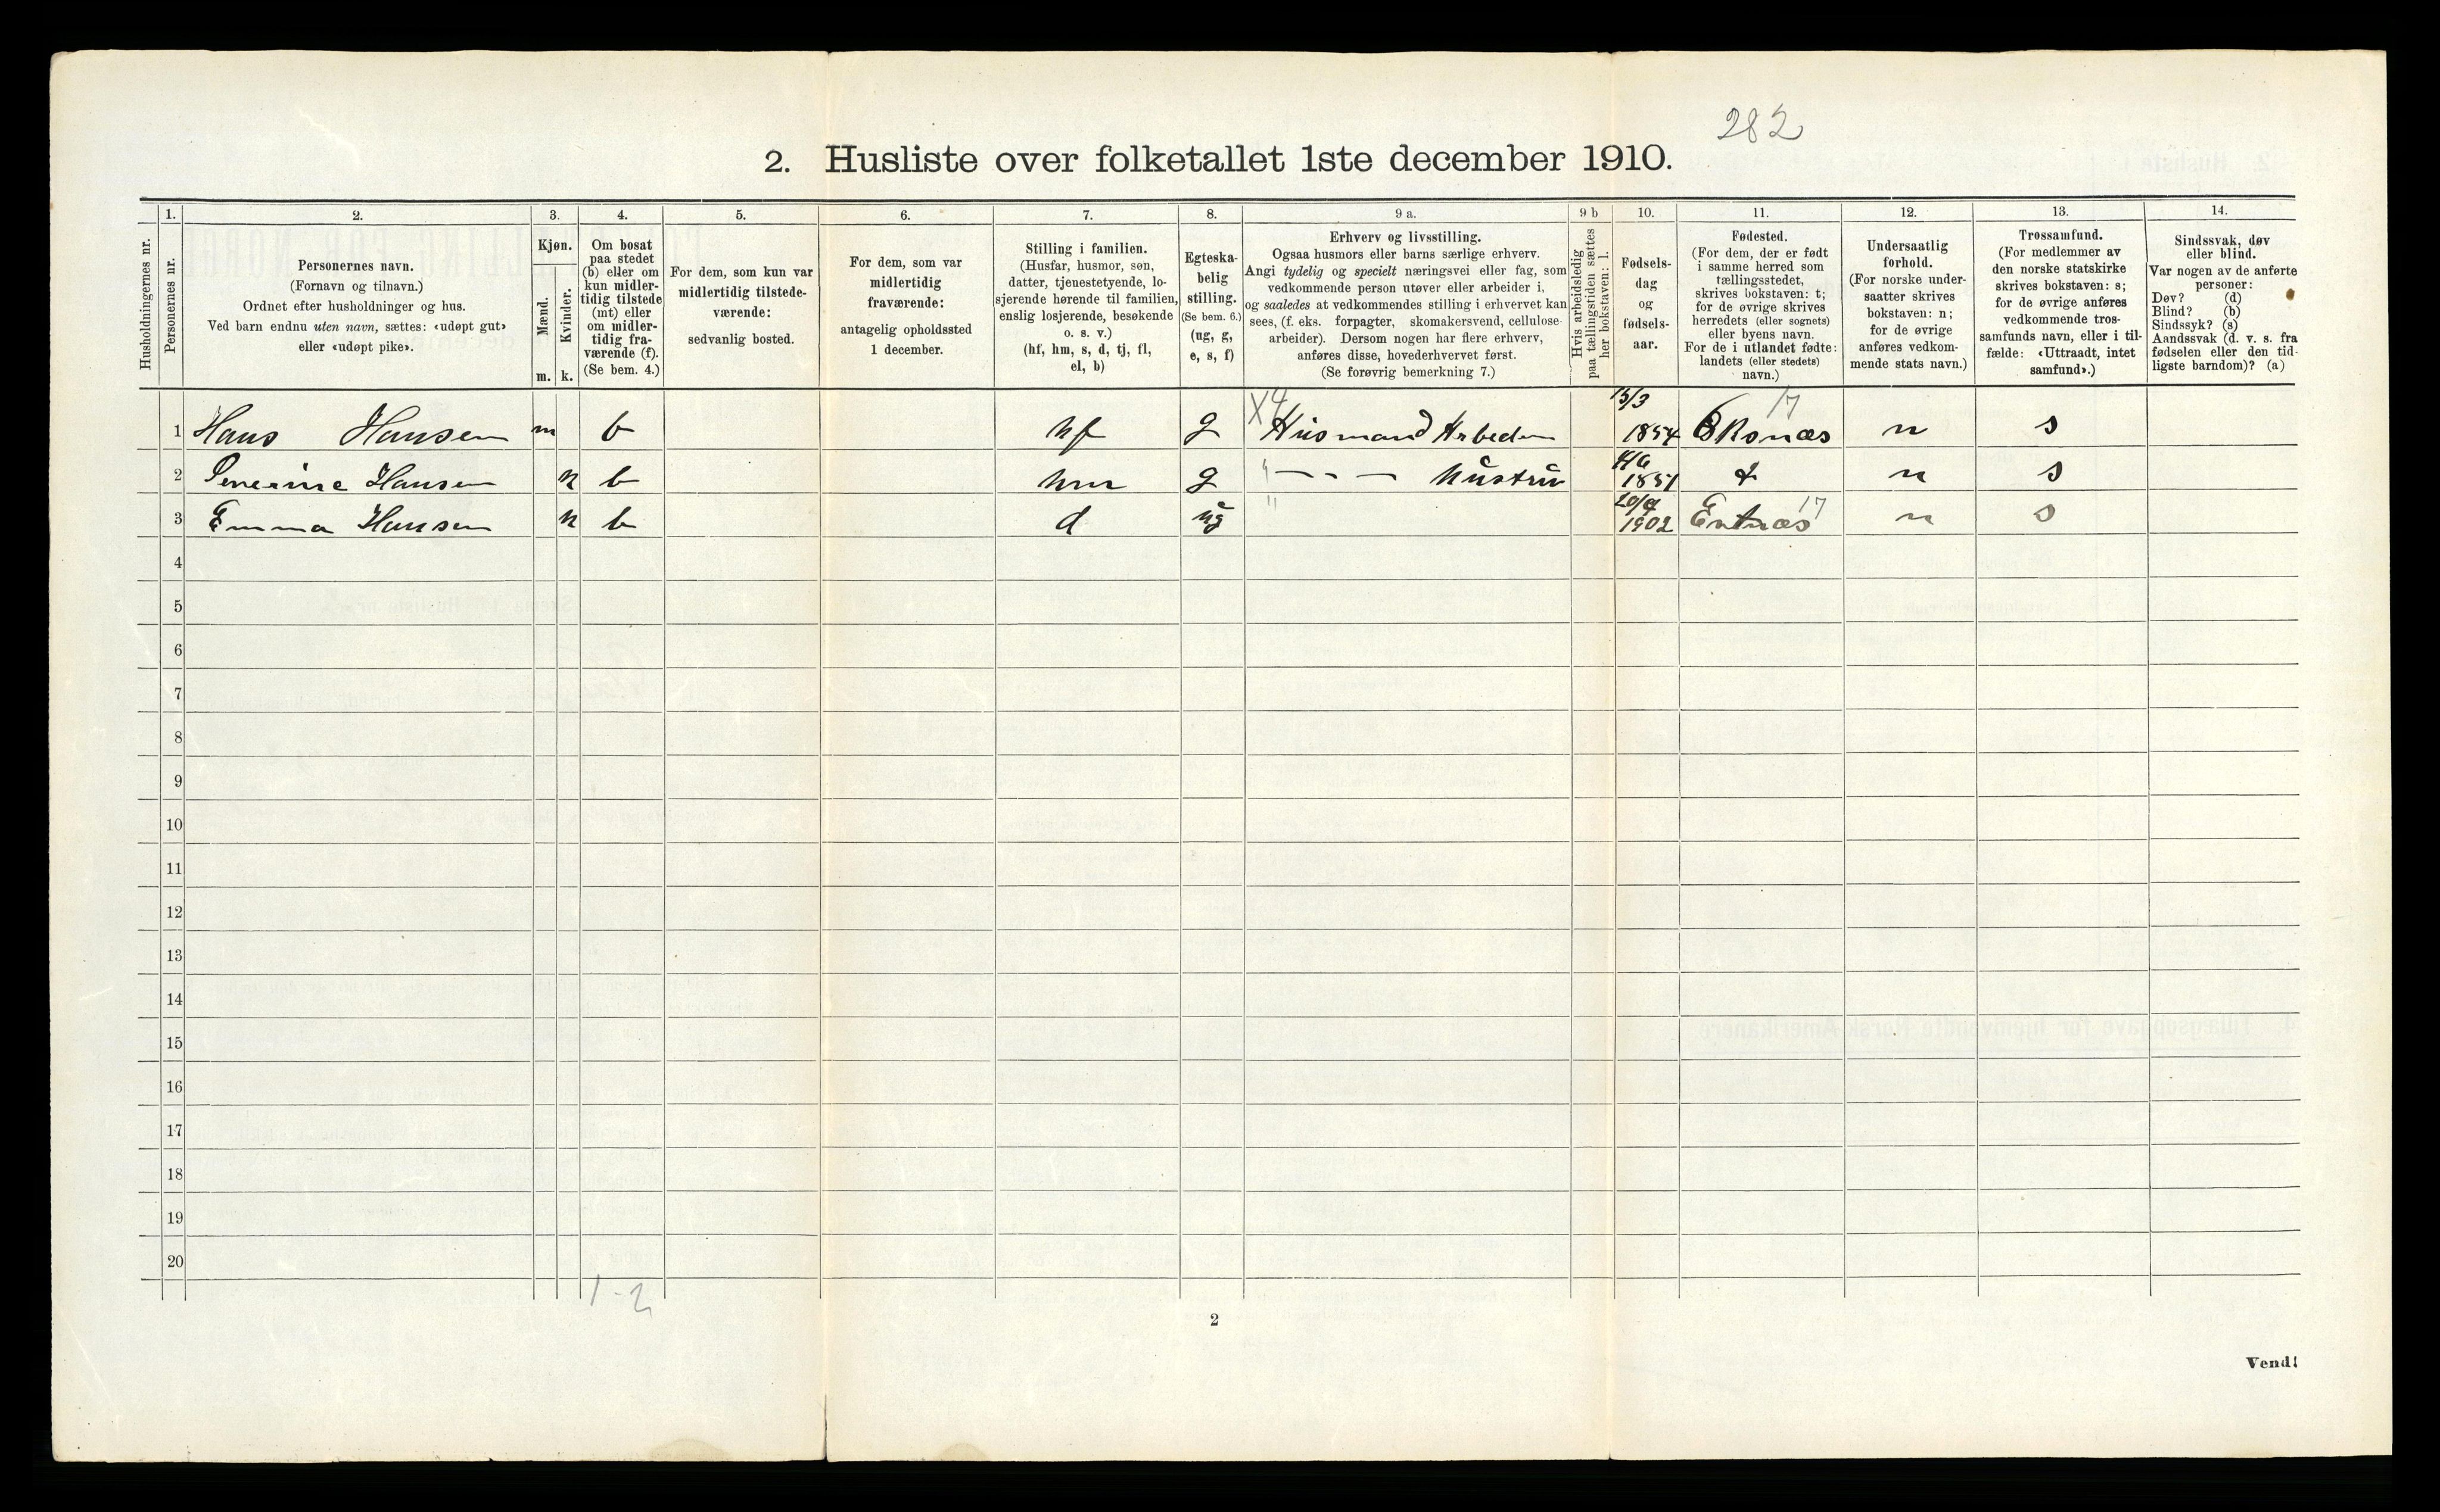 282
2. Husliste over folketallet 1ste december 1910.
Husholdningernes nr.
1.
Personernes nr.
2.
Personernes navn.
(Fornavn og tilnavn.)
Ordnet efter husholdninger og hus.
Ved barn endnu uten navn, sættes: «udøpt gut»
eller «udøpt pike».
3.
Kjøn.
Mænd.
Kvinder.
m. k.
4.
Om bosat
paa stedet
(b) eller om
kun midler-
tidig tilstede
(mt) eller
om midler-
tidig fra-
værende (f).
(Se bem. 4.)
5.
For dem, som kun var
midlertidig tilstede-
værende:
sedvanlig bosted.
6.
For dem, som var
midlertidig
fraværende:
antagelig opholdssted
1 december.
7.
Stilling i familien.
(Husfar, husmor, søn,
datter, tjenestetyende, lo-
sjerende hørende til familien,
enslig losjerende, besøkende
o. s. v.)
(hf, hm, s, d, tj, fl,
el, b)
8.
Egteska-
belig
stilling.
(Se bem. 6.)
(ug, g,
e, s, f)
9 a.
Erhverv og livsstilling.
Ogsaa husmors eller barns særlige erhverv.
Angi tydelig og specielt næringsvei eller fag, som
vedkommende person utøver eller arbeider i,
og saaledes at vedkommendes stilling i erhvervet kan
sees, (f. eks. forpagter, skomakersvend, cellulose-
arbeider). Dersom nogen har flere erhverv,
anføres disse, hovederhvervet først.
(Se forøvrig bemerkning 7.)
9 b
Hvis arbeidsledig
paa tællingstiden sættes
her bokstaven: l.
10.
Fødsels-
dag
og
fødsels-
aar.
11.
Fødested.
(For dem, der er født
i samme herred som
tællingsstedet,
skrives bokstaven: t;
for de øvrige skrives
herredets (eller sognets)
eller byens navn.
For de i utlandet fødte:
landets (eller stedets)
navn.)
12.
Undersaatlig
forhold.
(For norske under-
saatter skrives
bokstaven: n;
for de øvrige
anføres vedkom-
mende stats navn.)
13.
Trossamfund.
(For medlemmer av
den norske statskirke
skrives bokstaven: s;
for de øvrige anføres
vedkommende tros-
samfunds navn, eller i til-
fælde: «Uttraadt, intet
samfund».)
14.
Sindssvak, døv
eller blind.
Var nogen av de anførte
personer:
Døv? (d)
Blind? (b)
Sindssyk? (s)
Aandssvak (d. v. s. fra
fødselen eller den tid-
ligste barndom)? (a)
1 Hans Hansen m b hf g X4 Husmand Arbeder 15/3 1854 17 n s
2 Severine Hansen k b hm g " - - - hustru 1851 n s
3 Emma Hansen k b d ug " 20/9 1902 17 n s
4
5
6
7
8
9
10
11
12
13
14
15
16
17
18
19
20
1-2
2
Vend!